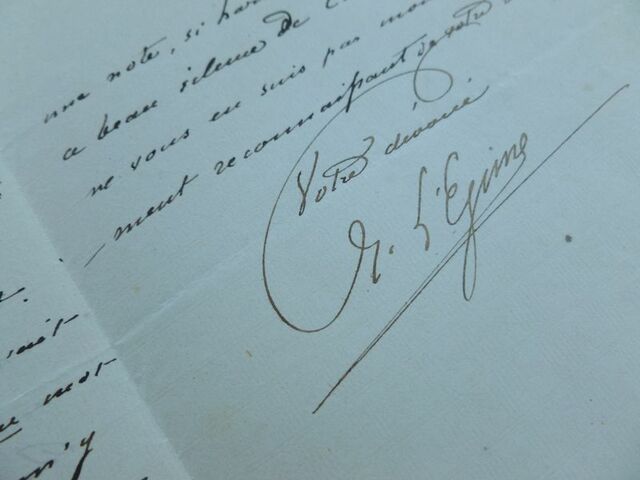 une note, si
a beau silence de
ne vous en suis pas
ment reconnaissant de votre
Votre dévoué
L'Epine
mot
n'y